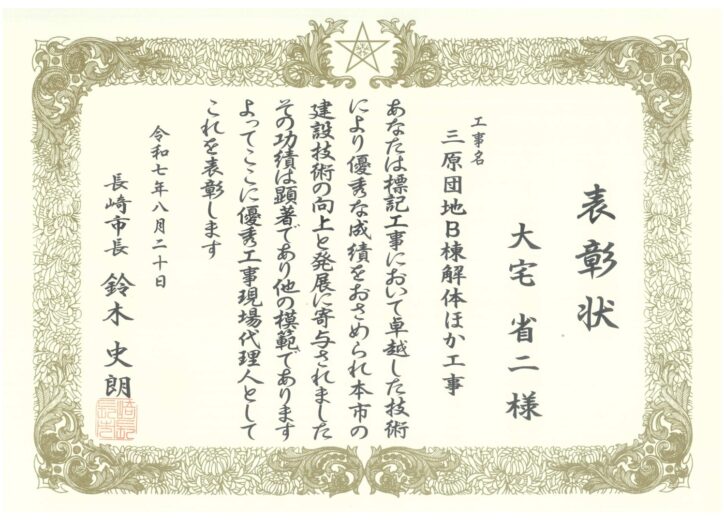 表彰状
大宅 省二 様
工事名
三原団地B棟解体ほか工事
あなたは標記工事において卓越した技術
により優秀な成績をおさめられ本市の
建設技術の向上と発展に寄与されました
その功績は顕著であり他の模範であります
よってここに優秀工事現場代理人として
これを表彰します
令和七年八月二十日
長崎市長 鈴木 史朗